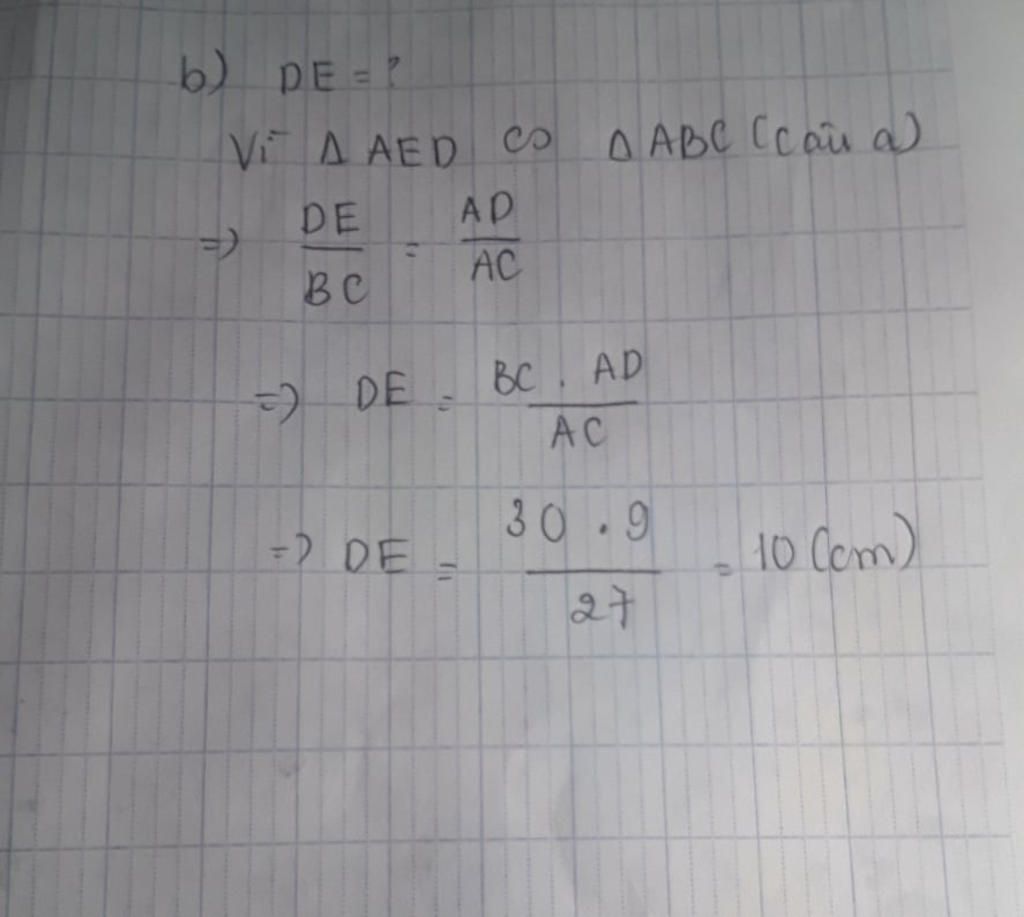 b) DE = ?
Vì △ AED ∽ △ ABC (câu a)
=> DE/BC = AD/AC
=> DE = BC . AD/AC
=> DE = 30 . 9/27 = 10 (cm)